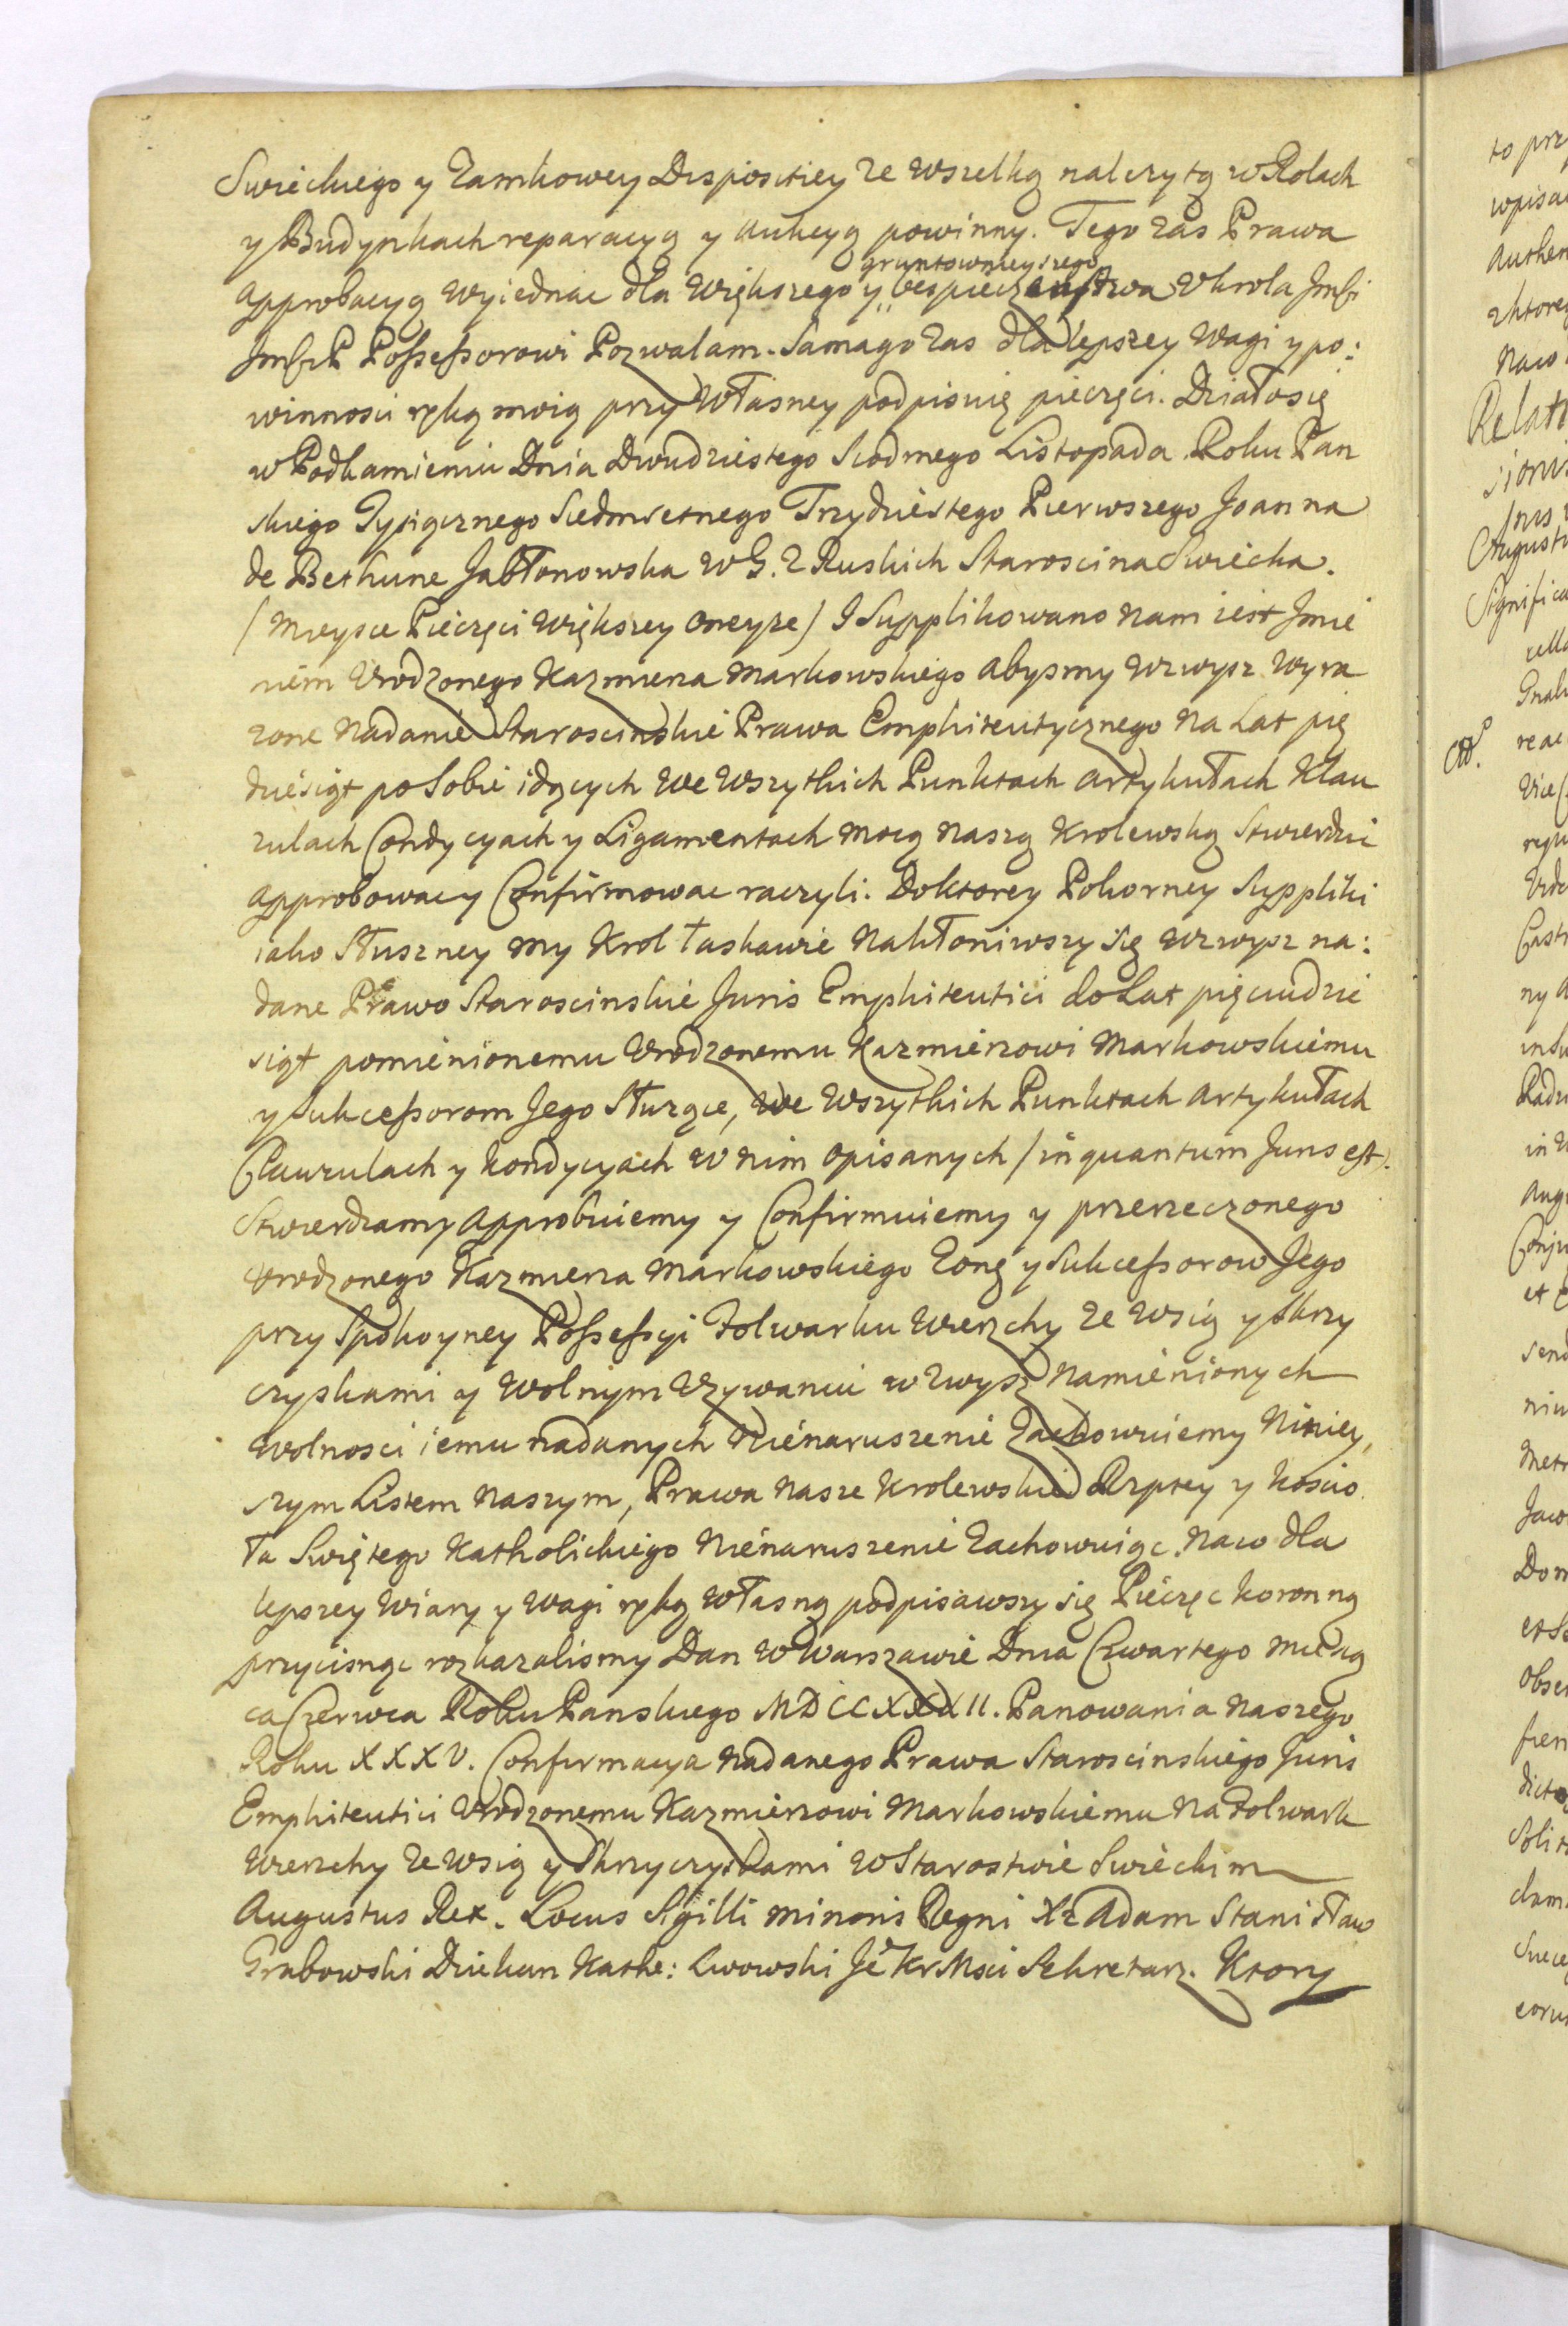 Swieckiego y Zamkowey Dispositiey ze wszelką należytą w Rolach
y Budynkach reparacyą y Aukcyą powinny. Tego zas Prawa
gruntownieyszego
approbacyą wyiednac dla większego y bespieczenstwa U Krola Jmsci
JmsciP Possessorowi Pozwalam. Samago zas dla lepszey Wagi y po:
winnosci ręką moią przy Własney podpisuię pieczęci. Działosię
w Podkamieniu Dnia Dwudziestego Siodmego Listopada Roku Pan
skiego Tysiącznego Siedmsetnego Trzydziestego Pierwszego Joanna
de Bethune Jabłonowska W G. Z Ruskich Staroscina Swiecka.
/ Mieysce Pieczęci Większey Oneyze / I Supplikowano Nam iest Jmie
niem Urodzonego Kazmierza Markowskiego abysmy wzwysz wyra
zone Nadanie Staroscinskie Prawa Emphiteutycznego Na Lat pię
dziesiąt po Sobie idących We Wszytkich Punktach Artykułach Klau
zulach Condycyach y Ligamentach Mocą Naszą Krolewską Stwierdzic
approbowac y Confirmowac raczyli. Doktorey Pokorney Suppliki
iako Słuszney My Krol łaskawie Nakłoniwszy się wzwysz na:
dane Prawo Staroscinskie Juris Emphiteutici do Lat pięciudzie
siąt pomienionemu Urodzonemu Kazmierzowi Markowskiemu
y Sukcessorom Jego Służące, We Wszytkich Punktach Artykułach
Clauzulach y Kondycyach w nim opisanych / in quantum Juris est).
Stwierdzamy Approbuiemy y Confirmuiemy y przerzeczonego
Urodzonego Kazmierza Markowskiego Zonę y Sukcessorow Jego
przy Spokoyney Possessyi Folwarku Wierzchy ze Wsią y Skrzy
czyskami y Wolnym Uzywaniu w zwysz Namienionych
Wolnosci iemu nadanych Nienaruszenie Zachowuiemy Niniey,
szym Listem Naszym, Prawa Nasze Krolewskie Rzptey y Koscio
ła Swiętego Katholickiego Nienaruszenie Zachowuiąc. Naco dla
lepszey Wiary y Wagi ręką Własną podpisawszy się Pieczęc koronną
przycisnąc rozkazalismy Dan w Warszawie Dnia Czwartego Miesią
ca Czerwca Roku Panskiego MDCCXXXII. Panowania Naszego
Roku XXXV. Confirmacya Nadanego Prawa Staroscinskiego Juris
Emphiteutici Urodzonemu Kazmierzowi Markowskiemu Na Folwark
Wierzchy ze Wsią y Skrzyczyskami W Starostwie Swieckim
Augustus Rex. Locus Sigilli Minoris Regni Xz Adam Stanisław
Grabowski Dziekan Kathe: Lwowski Je Kr Msci Sekretarz. Ktory
to prz
wpisa
Authen
zktorey
Naco
Relati
Augusti
Significa